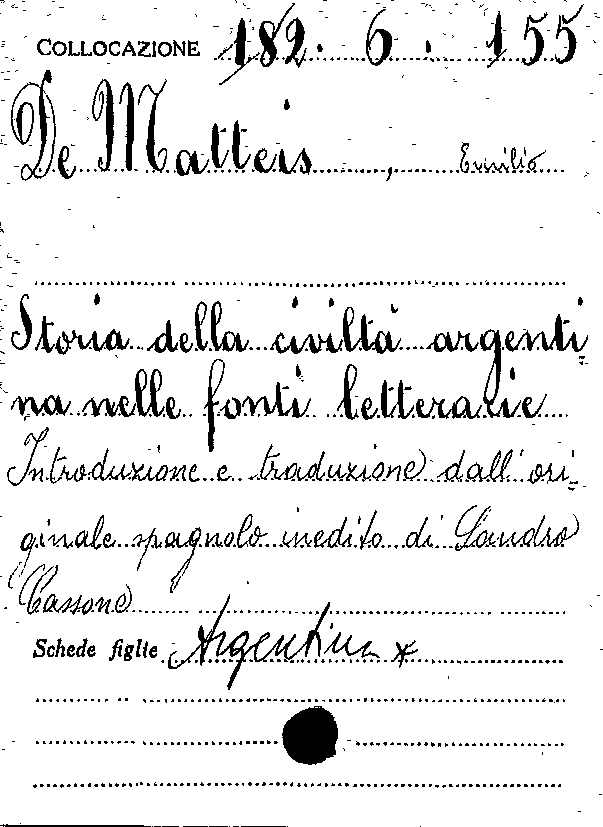 COLLOCAZIONE 182. 6. 155
De Matteis, Emilio
Storia della civiltà argenti-
na nelle fonti letterarie
Introduzione e traduzione dall'ori-
ginale spagnolo inedito di Sandro
Cassone
Schede figlie Argentina *